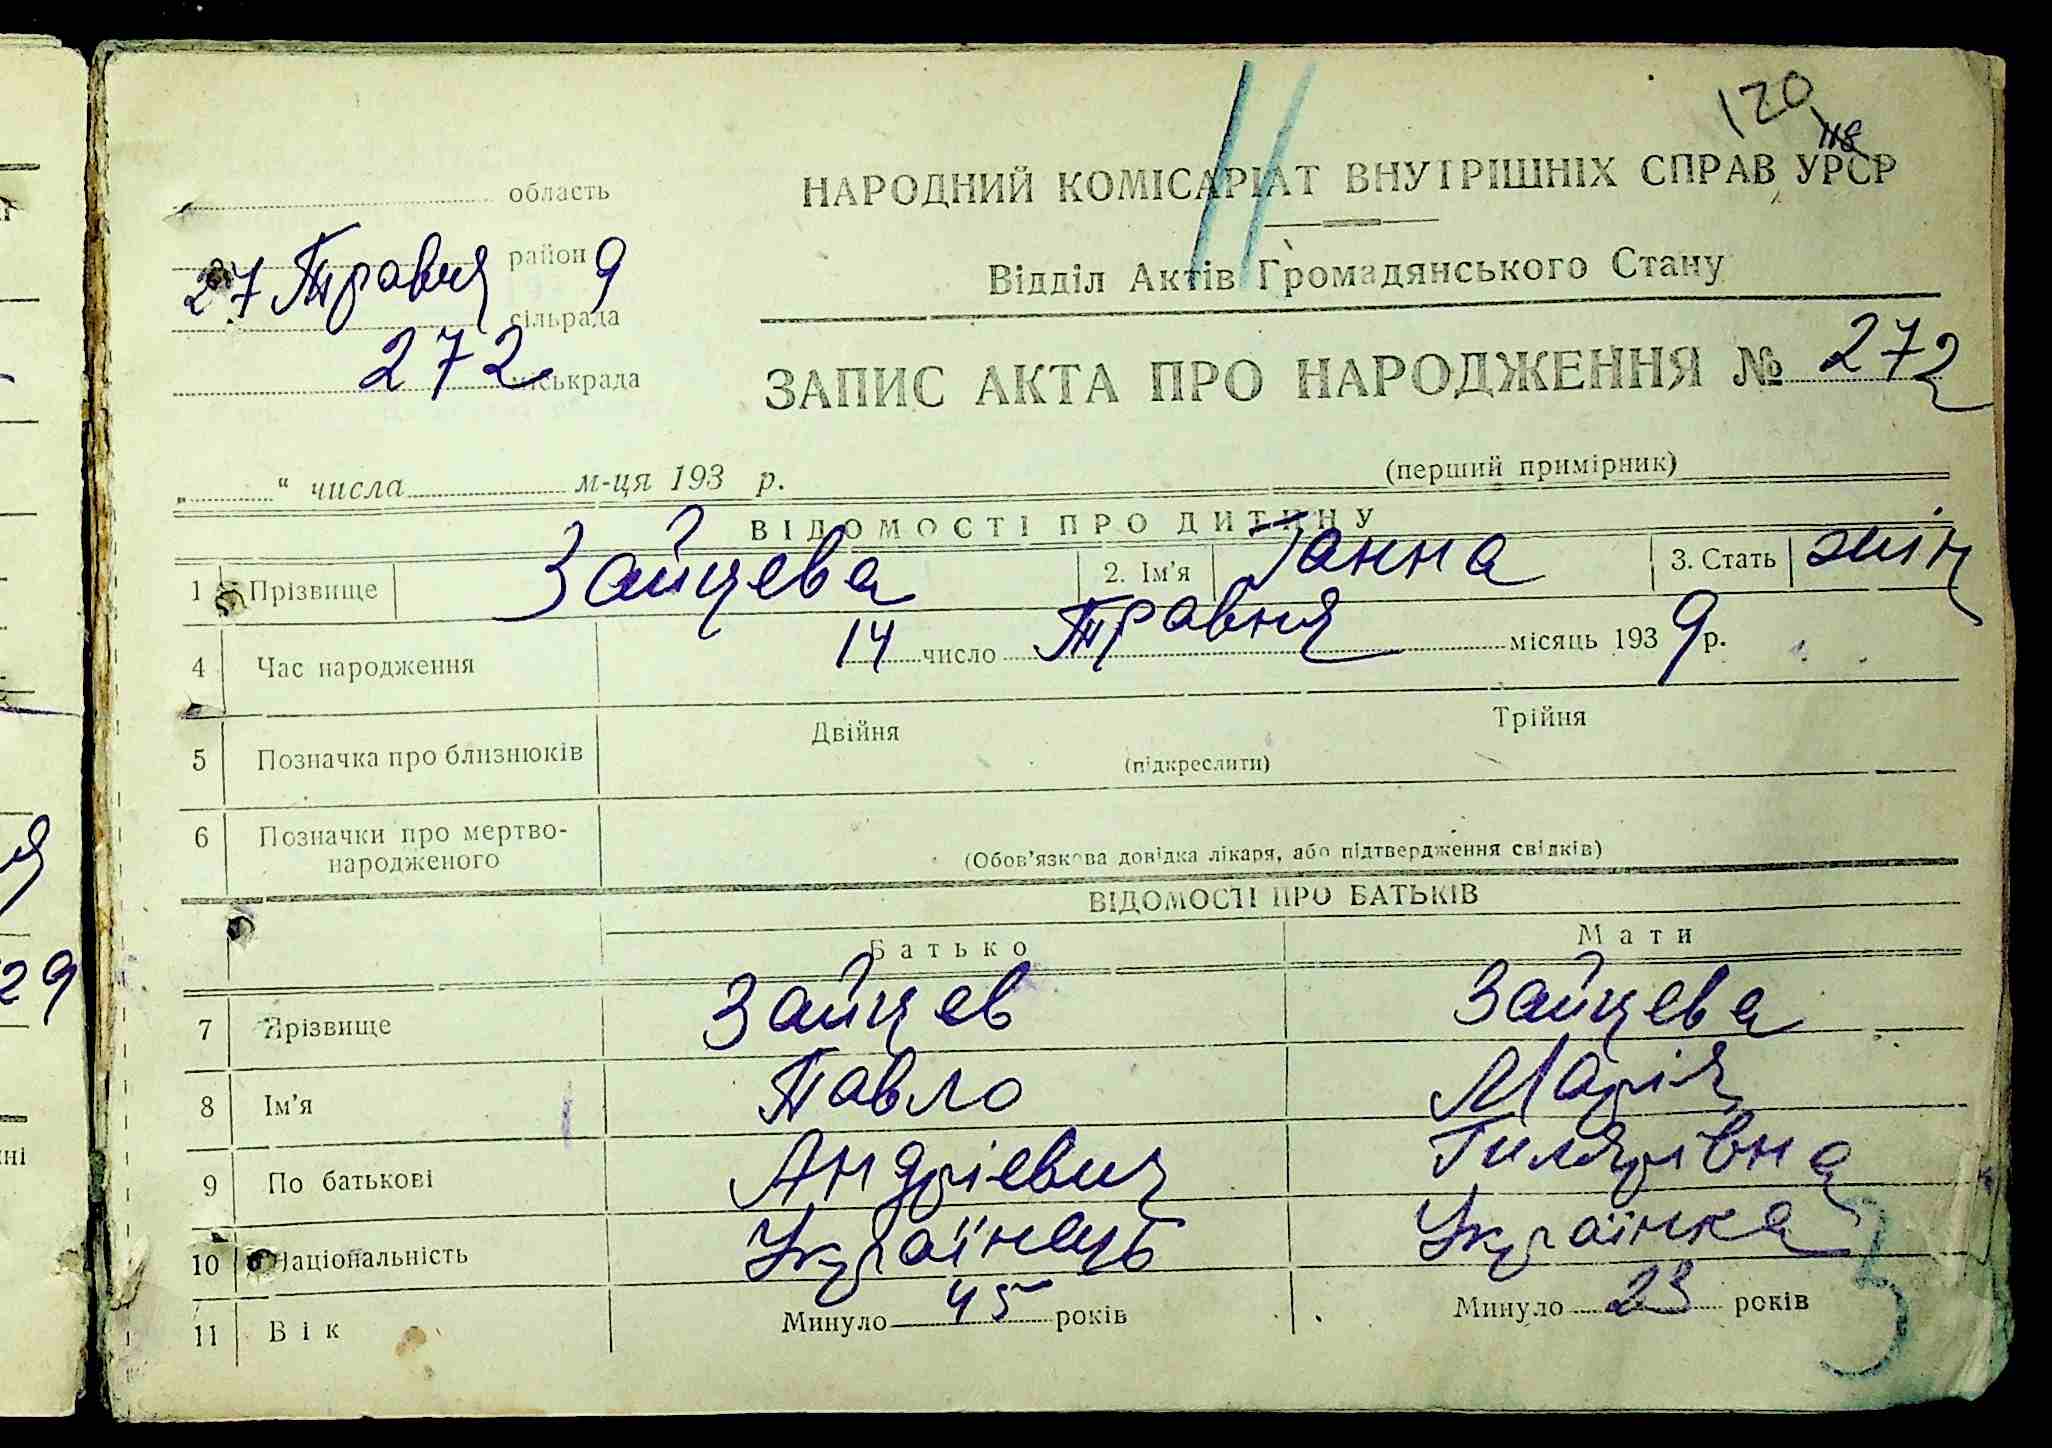 120
118
область
НАРОДНИЙ КОМІСАРІАТ ВНУТРІШНІХ СПРАВ УРСР
27 Травня район 9
Відділ Актів Громадянського Стану
сільрада
272 міськрада
ЗАПИС АКТА ПРО НАРОДЖЕННЯ № 272
(перший примірник)
„ “ числа м-ця 193 р.
ВІДОМОСТІ ПРО ДИТИНУ
1 Прізвище Зайцева 2. Ім'я Ганна 3. Стать жін
4 Час народження 14 число Травня місяць 1939 р.
5 Позначка про близнюків Двійня (підкреслити) Трійня
6 Позначки про мертво-
народженого (Обов'язкова довідка лікаря, або підтвердження свідків)
ВІДОМОСТІ ПРО БАТЬКІВ
Батько Мати
7 Прізвище Зайцев Зайцева
8 Ім'я Павло Марія
9 По батькові Андрієвич Гилярівна
10 Національність Українець Українка
11 Вік Минуло 45 років Минуло 23 років
29
ні